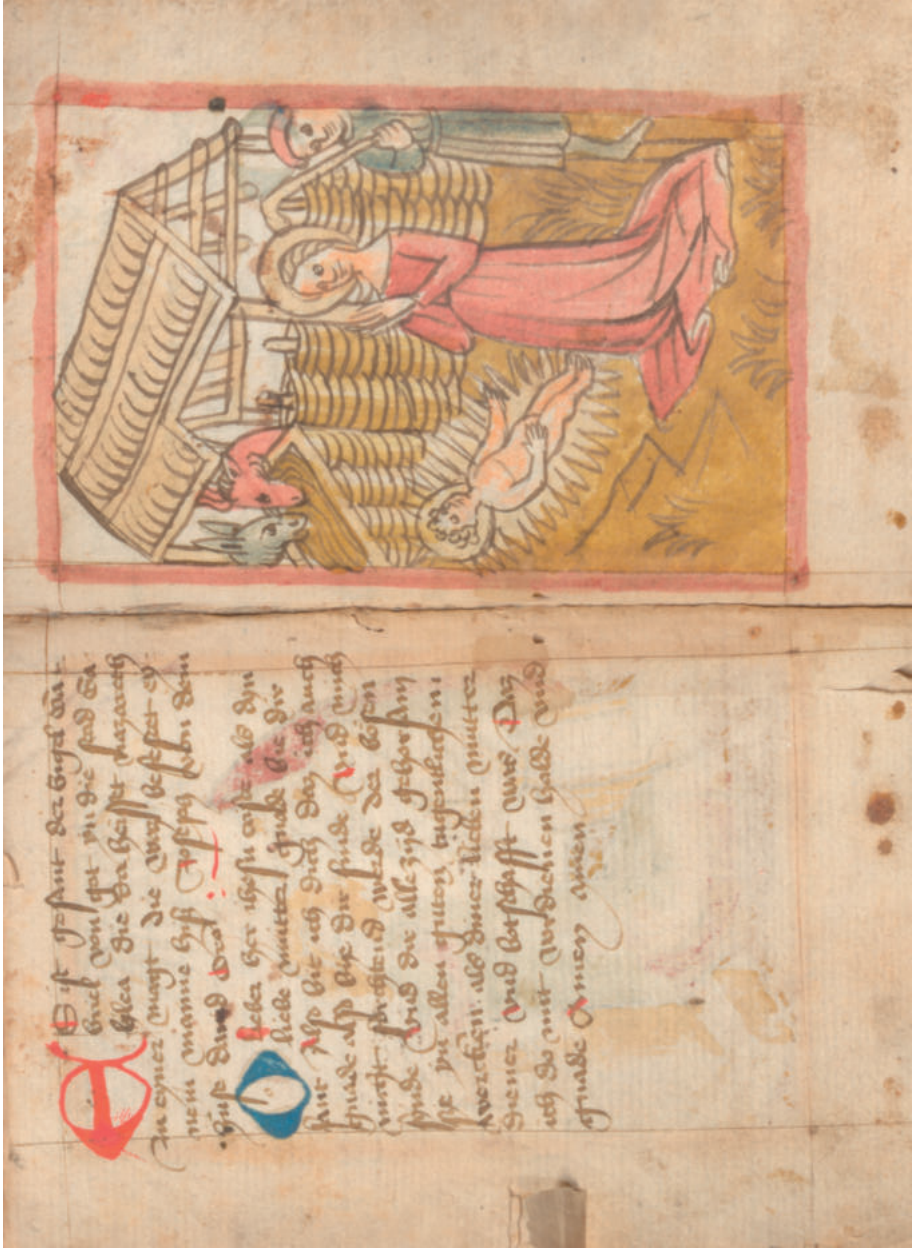 ES ist gesant der engel Ga-
briel von got in die stad Ga
lilea die da heisset nazareth
zu eyner magt die was ey
nem manne hyß Joseph von dem
huse Dauid
O lieber her ihesu criste als dyn
liebe mutter gnade bie dir
fant Also bit ich dich das ich auch
gnade also bye dir finde Vnd mich
der bosen
fynde Vnd dir alle zijd gehorsam
sy zu allen guten tugentlichen
wercken als diner lieben mutter
diener Vnd botschafft was Daz
ich do mit verdienen und
gnade Amen